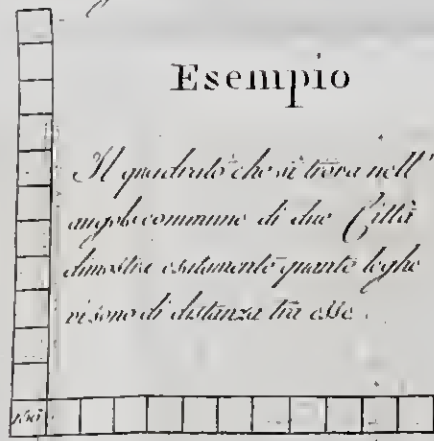 Esempio
Il quadrato che si trova nell'
angolo commune di due Città
dimostra esatamente quante leghe
vi sono di distanza tra esse.